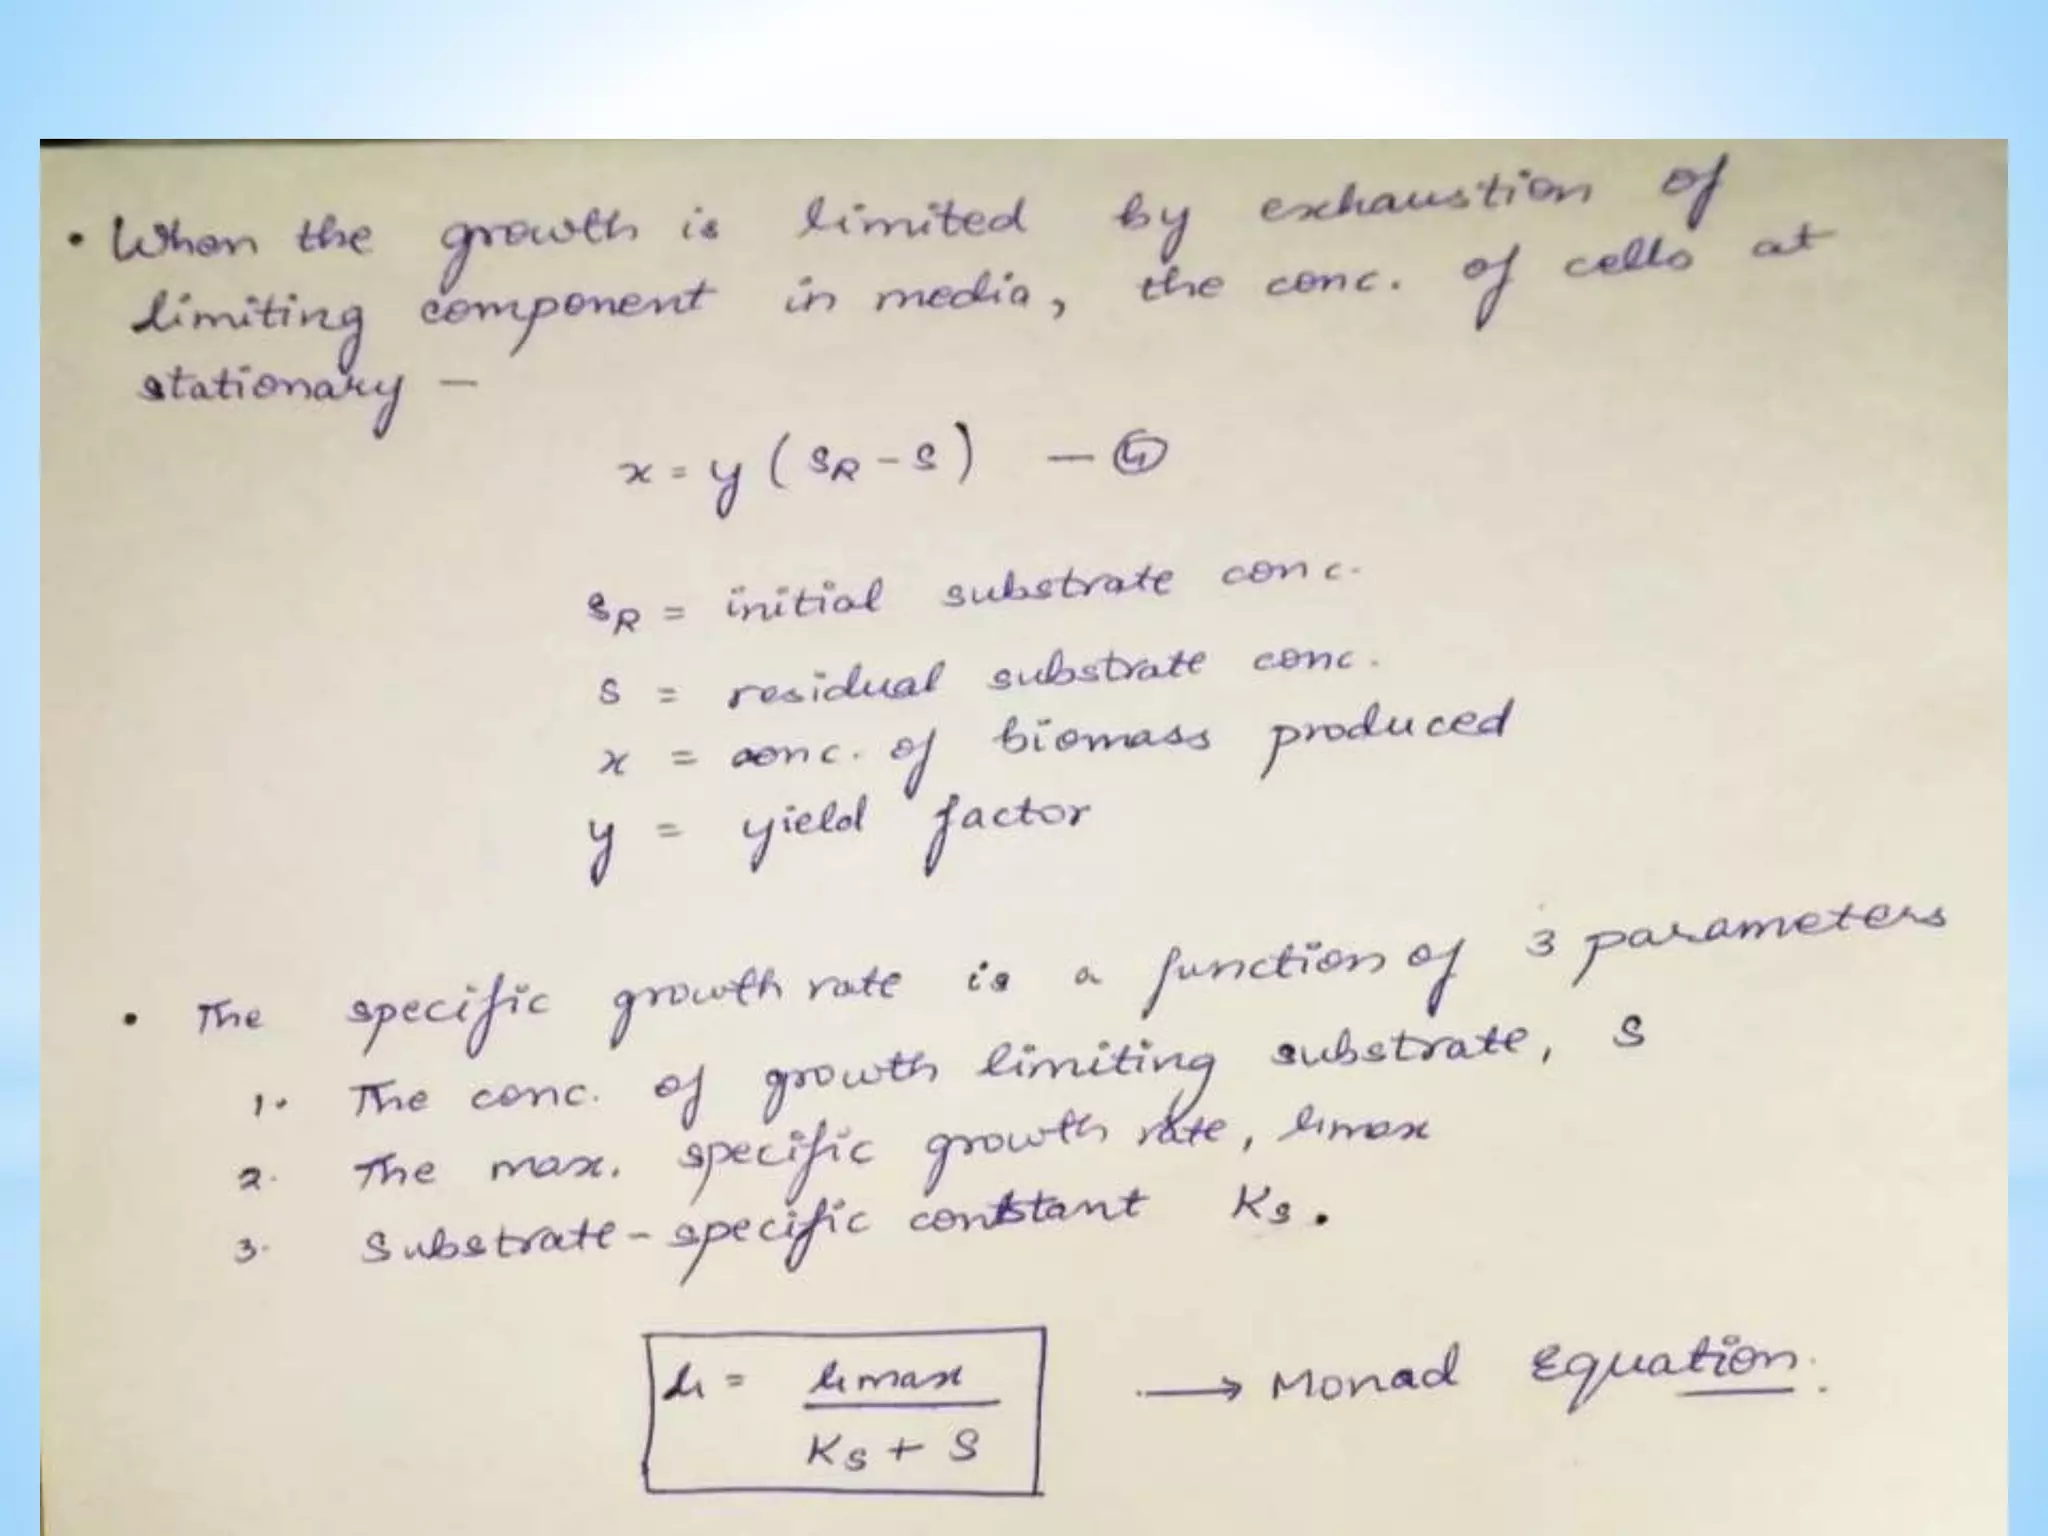 • When the growth is limited by exhaustion of
limiting component in media, the conc. of cells at
stationary –
x = y ( SR - S ) —
SR = initial substrate conc.
S = residual substrate conc.
x = conc. of biomass produced
y = yield factor
• The specific growth rate is a function of 3 parameters
1. The conc. of growth limiting substrate, S
2. The max. specific growth rate, μmax
3. Substrate-specific constant Ks.
μ = μmax
Ks + S
→ Monad Equation.